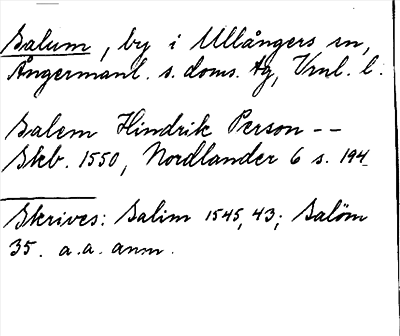 Salum, by i Ullångers sn,
Ångermanl. s. doms. tg, Vrnl. l.
Salem Hindrik Person --
Skb. 1550, Nordlander 6 s. 194.
Skrives: Salim 1545, 43; Salöm
35. a.a. anm.